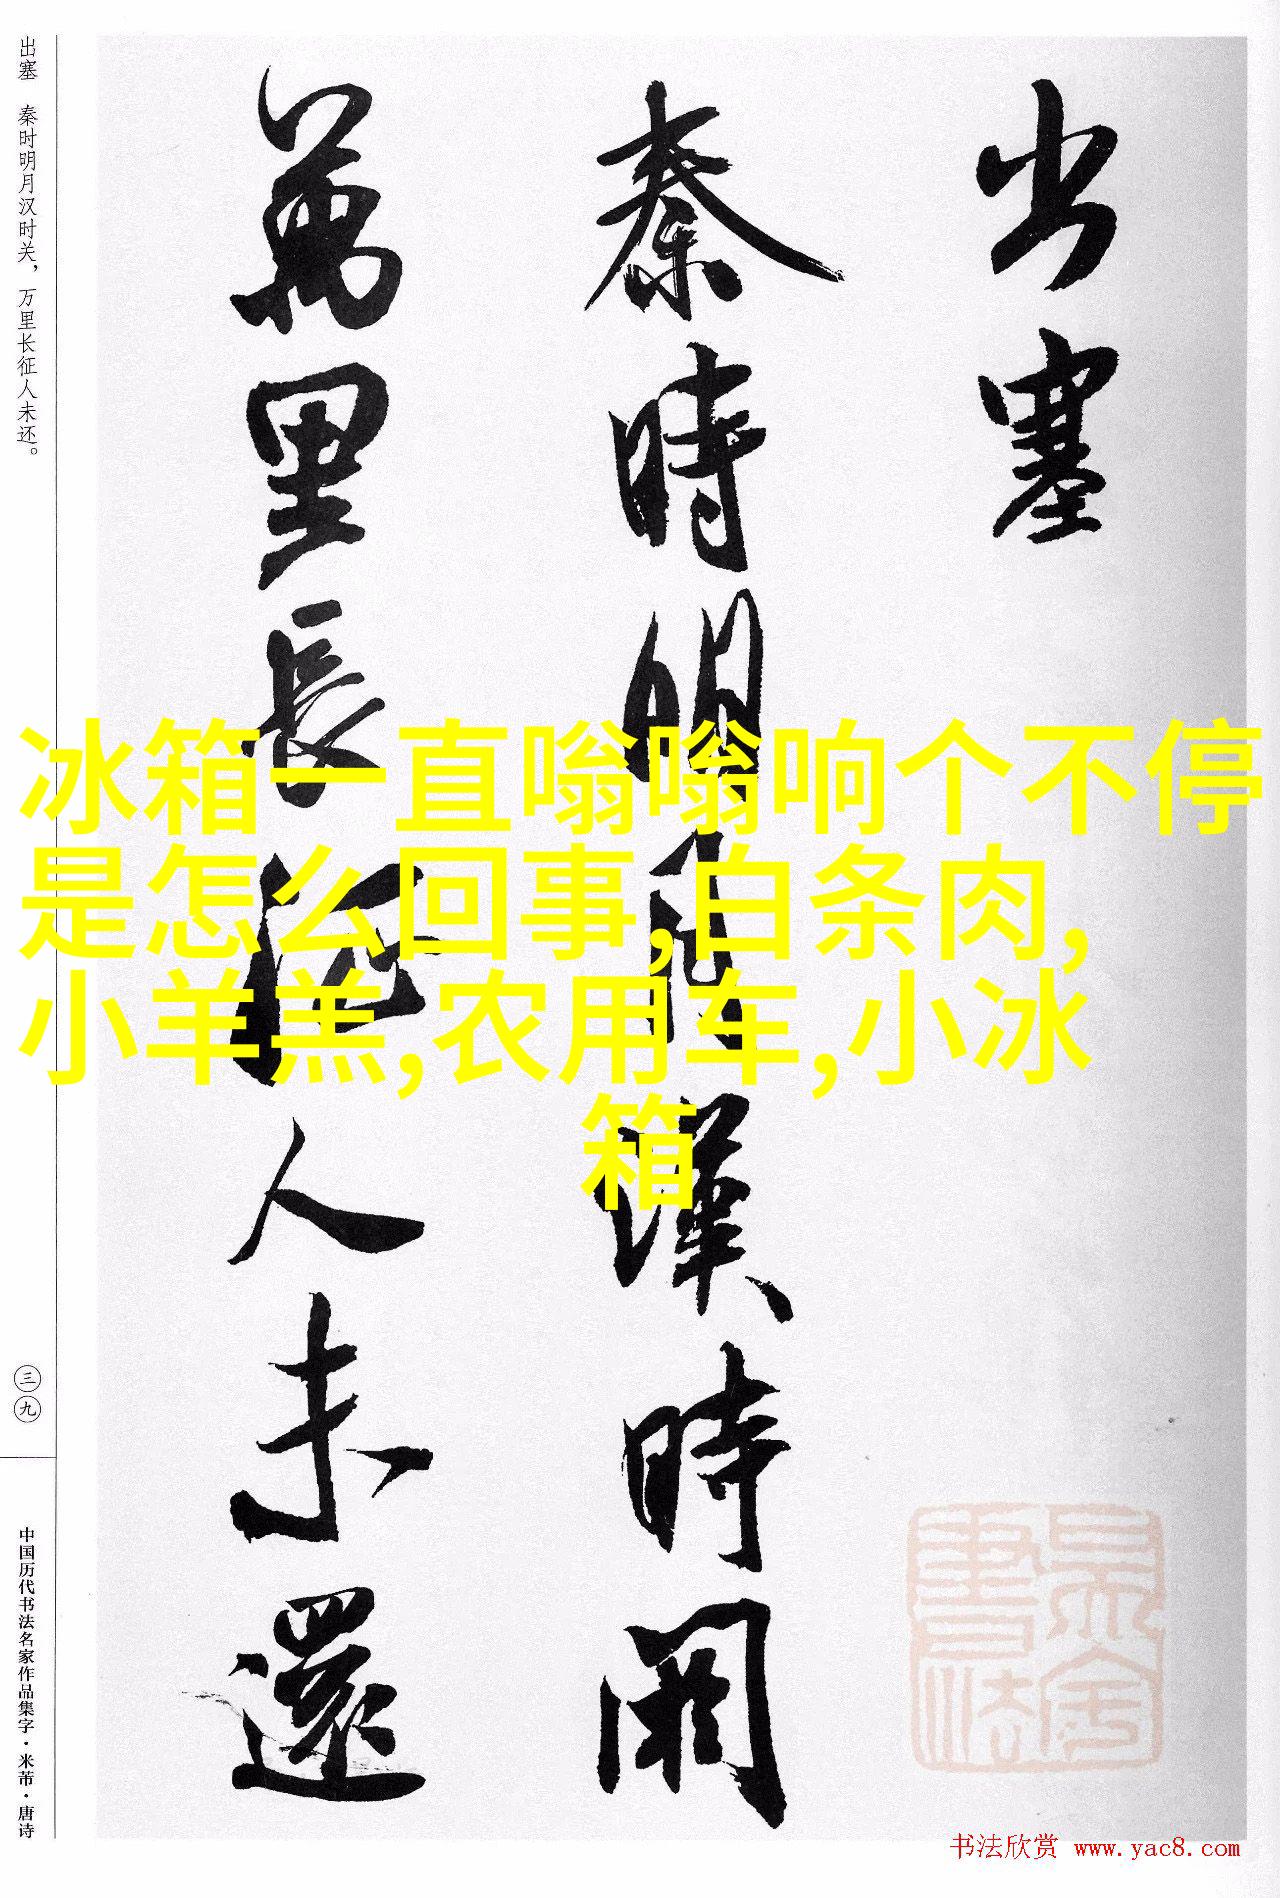 出塞 秦时明月汉时关，万里长征人未还。
出塞
秦時明月漢時関
萬里長征人未還
冰箱一直嗡嗡响个不停
是怎么回事,白条肉,
小羊羔,农用车,小冰
箱
三九
中国历代书法名家作品集字·米芾·唐诗
书法欣赏 www.yac8.com